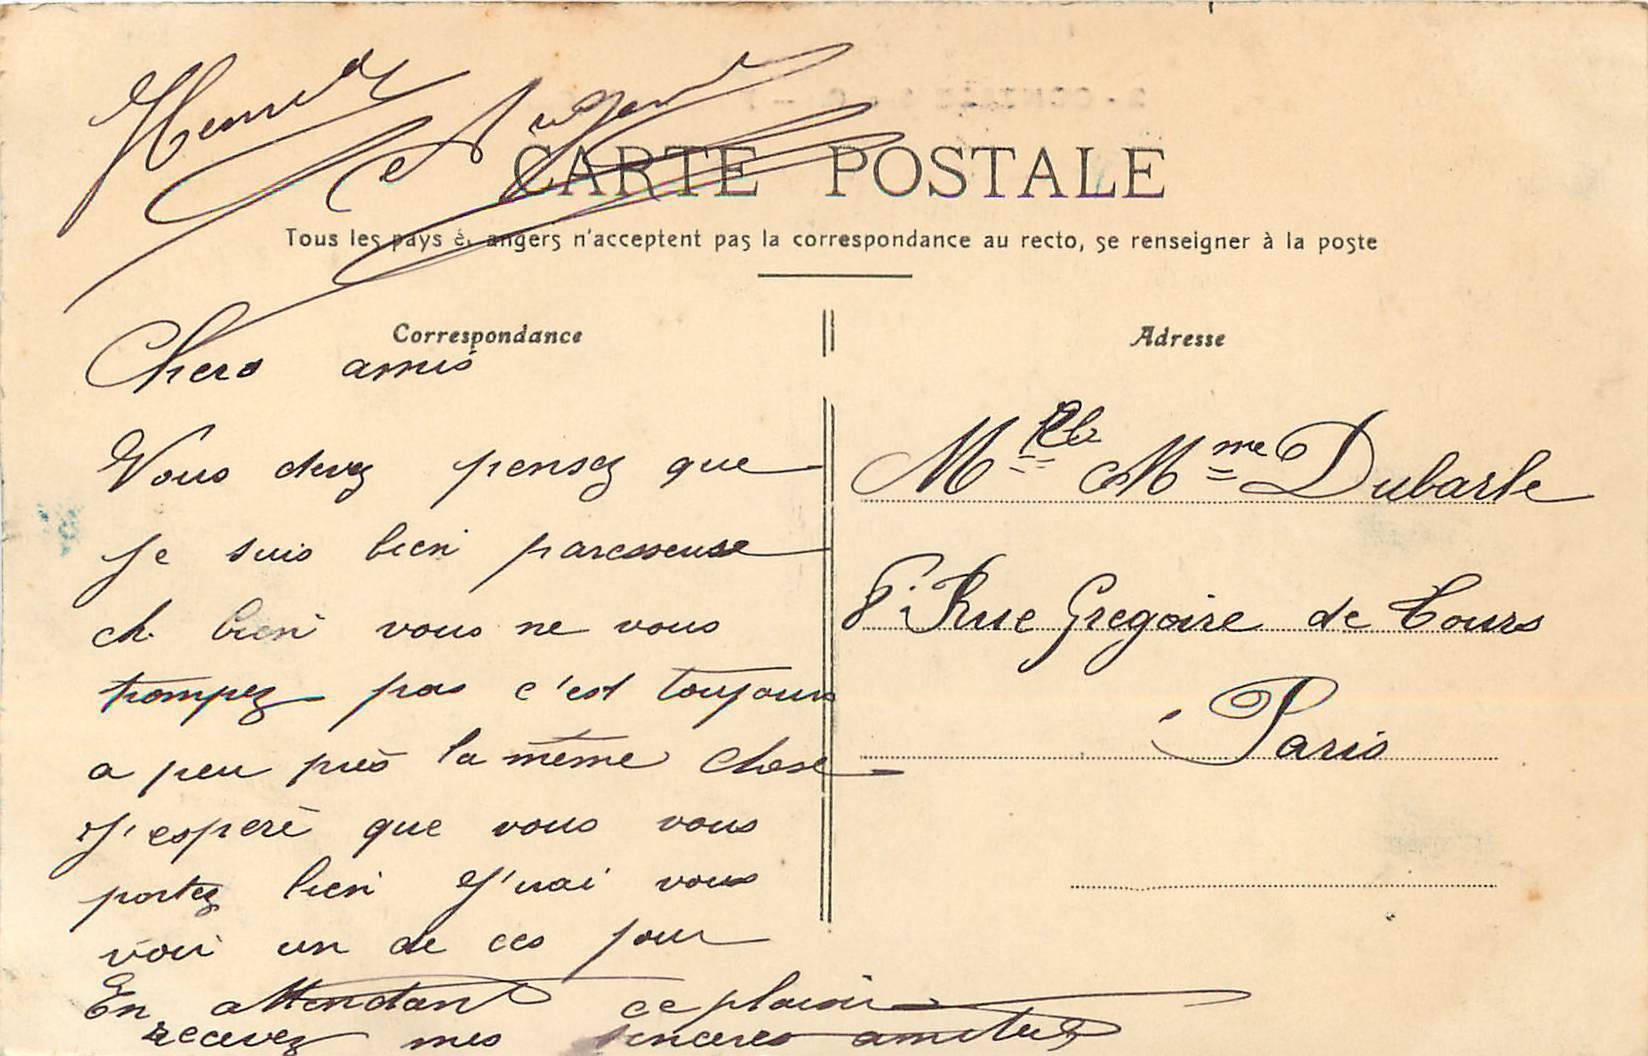 CARTE POSTALE
Tous les pays é. angers n'acceptent pas la correspondance au recto, se renseigner à la poste
Correspondance
Chers amis
Vous devez pensez que
je suis bien paresseuse
eh bien vous ne vous
trompez pas c'est toujours
a peu près la même chose
J'espère que vous vous
portez bien J'irai vous
voir un de ces jour
En attendant ce plaisir
recevez mes sinceres amitiés
Adresse
Mr et Mme Dubarle
8 Rue Gregoire de Tours
Paris